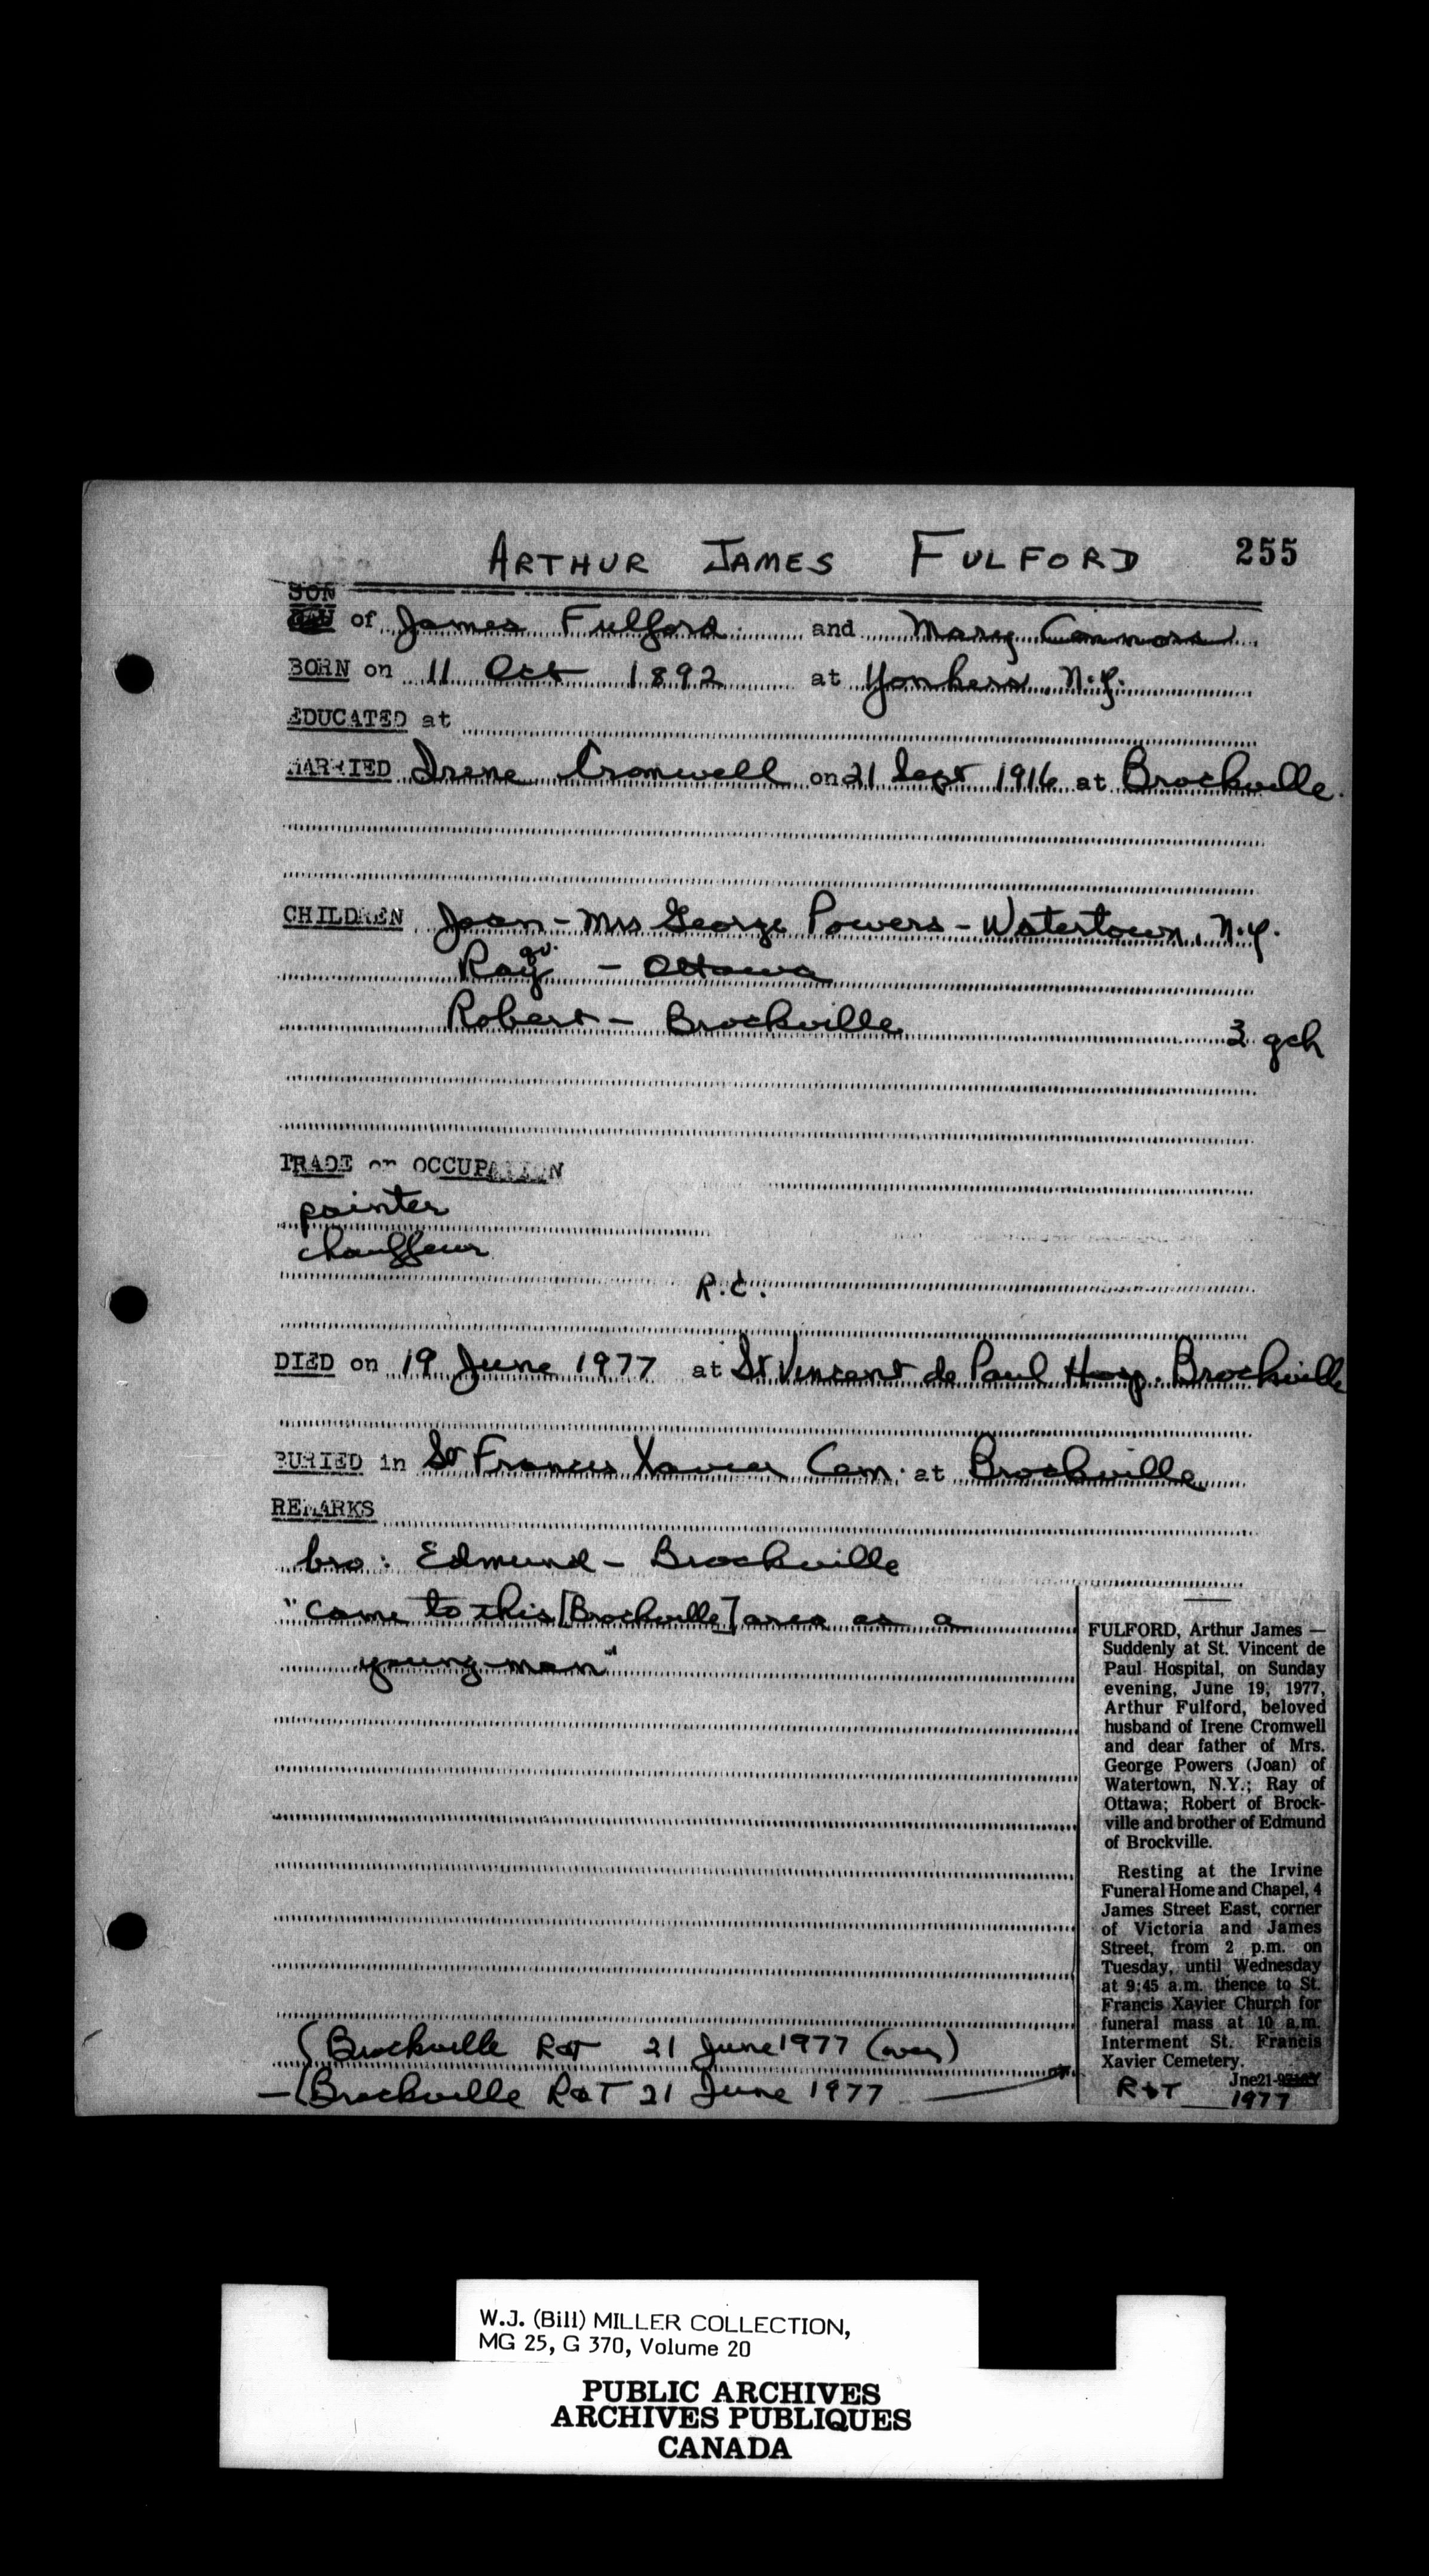 ARTHUR JAMES FULFORD 255
SON
of James Fulford and Mary Connors
BORN on 11 Oct 1892 at Yonkers N.Y.
EDUCATED at
MARRIED Irene Cromwell on 21 Sept 1916 at Brockville.
CHILDREN Joan - Mrs George Powers - Watertown, N.Y.
qv.
Ray - Ottawa
Robert - Brockville 3 gch
TRADE or OCCUPATION
painter
chauffeur
R.C.
DIED on 19 June 1977 at St Vincent de Paul Hosp. Brockville
BURIED in St Francis Xavier Cem. at Brockville
REMARKS
bro: Edmund - Brockville
"came to this [Brockville] area as a
young man"
(Brockville R&T 21 June 1977 (over)
- (Brockville R&T 21 June 1977
FULFORD, Arthur James —
Suddenly at St. Vincent de
Paul Hospital, on Sunday
evening, June 19, 1977,
Arthur Fulford, beloved
husband of Irene Cromwell
and dear father of Mrs.
George Powers (Joan) of
Watertown, N.Y.; Ray of
Ottawa; Robert of Brock-
ville and brother of Edmund
of Brockville.
Resting at the Irvine
Funeral Home and Chapel, 4
James Street East, corner
of Victoria and James
Street, from 2 p.m. on
Tuesday, until Wednesday
at 9:45 a.m. thence to St.
Francis Xavier Church for
funeral mass at 10 a.m.
Interment St. Francis
Xavier Cemetery.
Jne21-
R&T 1977
W.J. (Bill) MILLER COLLECTION,
MG 25, G 370, Volume 20
PUBLIC ARCHIVES
ARCHIVES PUBLIQUES
CANADA